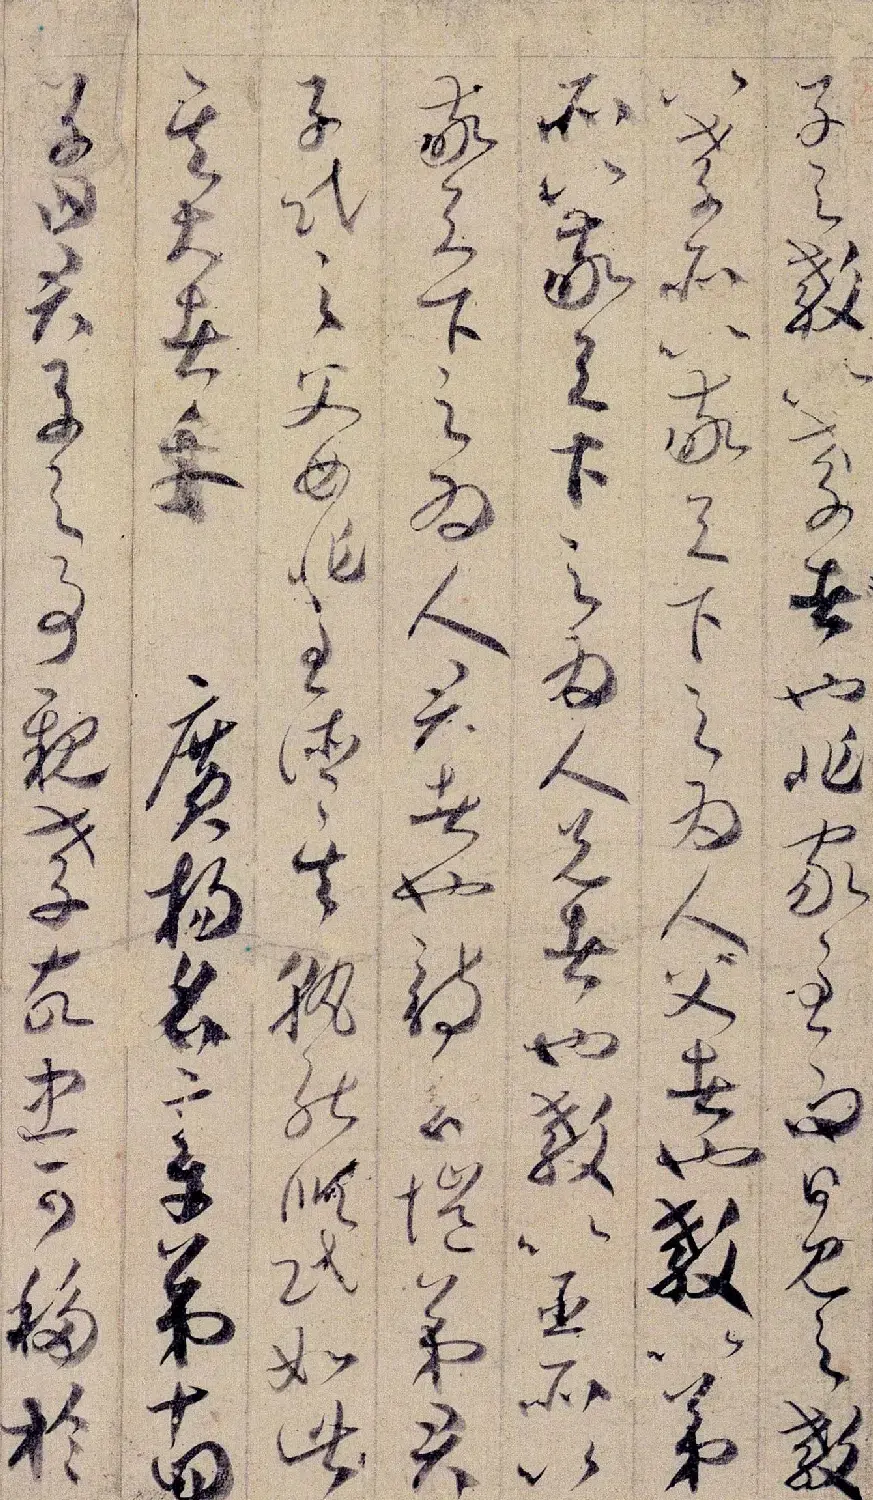 子之教以孝者也非家至而日見之教
以孝所以敬天下之為人父者也教以弟
所以敬天下之為人兄者也教以臣所以
敬天下之為人君者也詩云愷弟君
子民之父母非至德其孰能順民如此
其大者乎　廣揚名章第十四
子曰君子之事親孝故忠可移於